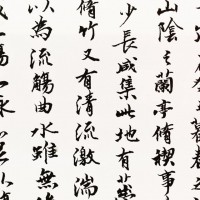 山陰之蘭亭脩禊事
少長咸集此地有崇
脩竹又有清流激湍
以為流觴曲水雖無